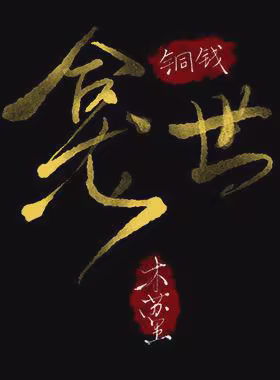 铜钱
龛世
木苏里